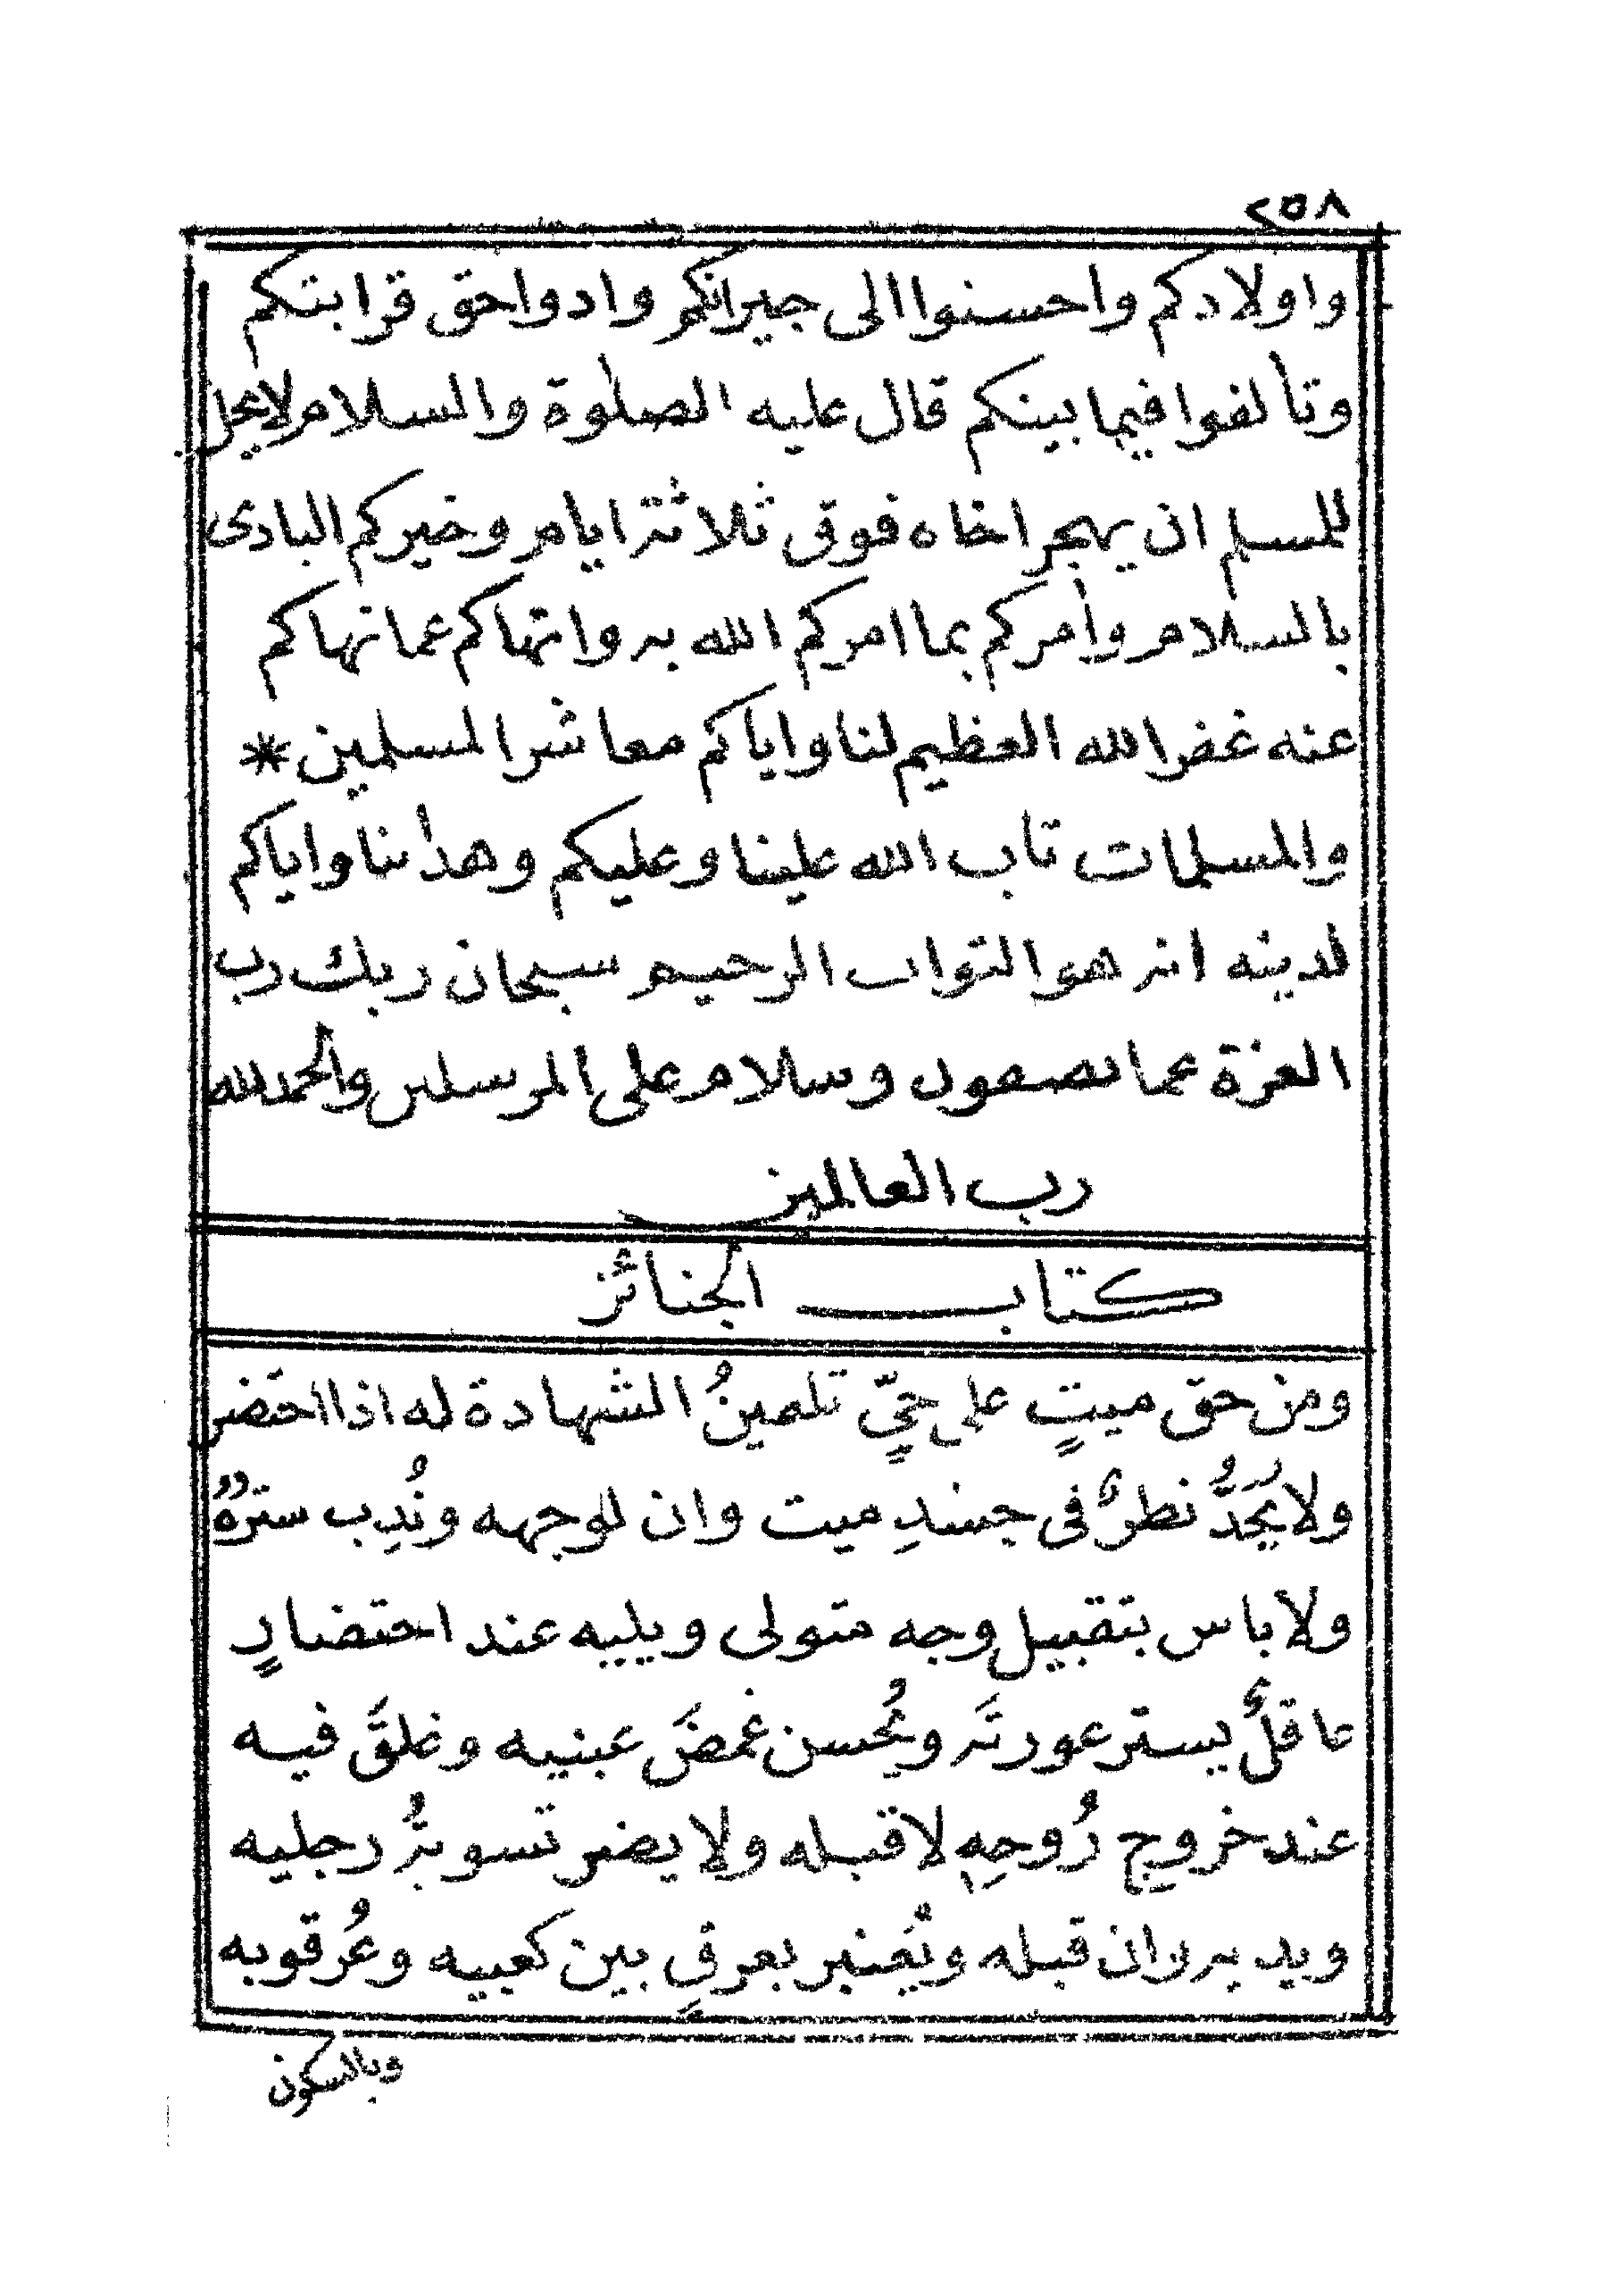 ٢٥٨
واولادكم واحسنوا الى جيرانكم وادوا حق قرابتكم
وتألفوا فيما بينكم قال عليه الصلوة والسلام لا يحل
للمسلم ان يهجر اخاه فوق ثلاثة ايام وخيركم البادى
بالسلام وأمركم بما امركم الله به وانهاكم عما نهاكم
عنه غفر الله العظيم لنا واياكم معاشر المسلمين *
والمسلمات تاب الله علينا وعليكم وهدانا واياكم
لدينه انه هو التواب الرحيم سبحان ربك رب
العزة عما يصفون وسلام على المرسلين والحمد لله
رب العالمين
كتاب الجنائز
ومن حق ميتٍ على حيٍّ تلقينُ الشهادة له اذا احتضر
ولا يُحَدُّ نظرٌ فى جسدِ ميت وان لوجهه ونُدِب سترهُ
ولا باس بتقبيل وجه متولى ويليه عند احتضارٍ
عاقلٌ يستر عورتَه ويُحسن غمضَ عينيه وغلقَ فيه
عند خروج رُوحِهِ لا قبله ولا يضر تسويةُ رجليه
ويديه وان قبله ويُعتبر بعرقٍ بين كعبيه وعُرقوبه
وبالسكون